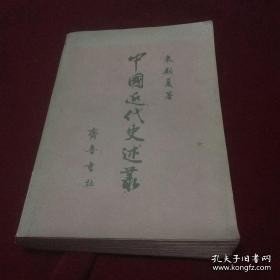 袁英光著
中國近代史述叢
齊魯書社
孔夫子旧书网